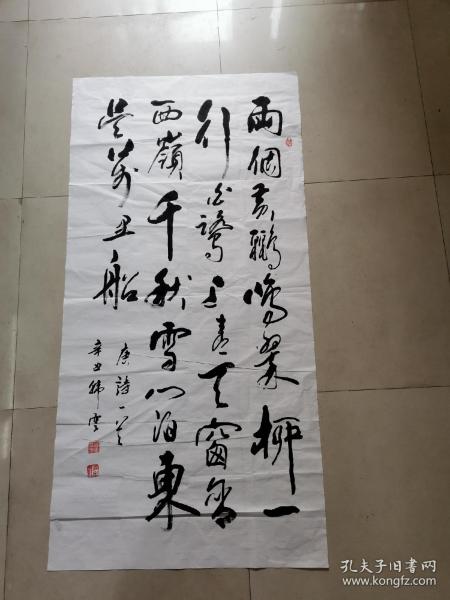 兩個黃鸝鳴翠柳一
行白鷺上青天窗含
西嶺千秋雪門泊東
吳萬里船
唐詩一首
辛丑韓雲
孔夫子旧书网
www.kongfz.com